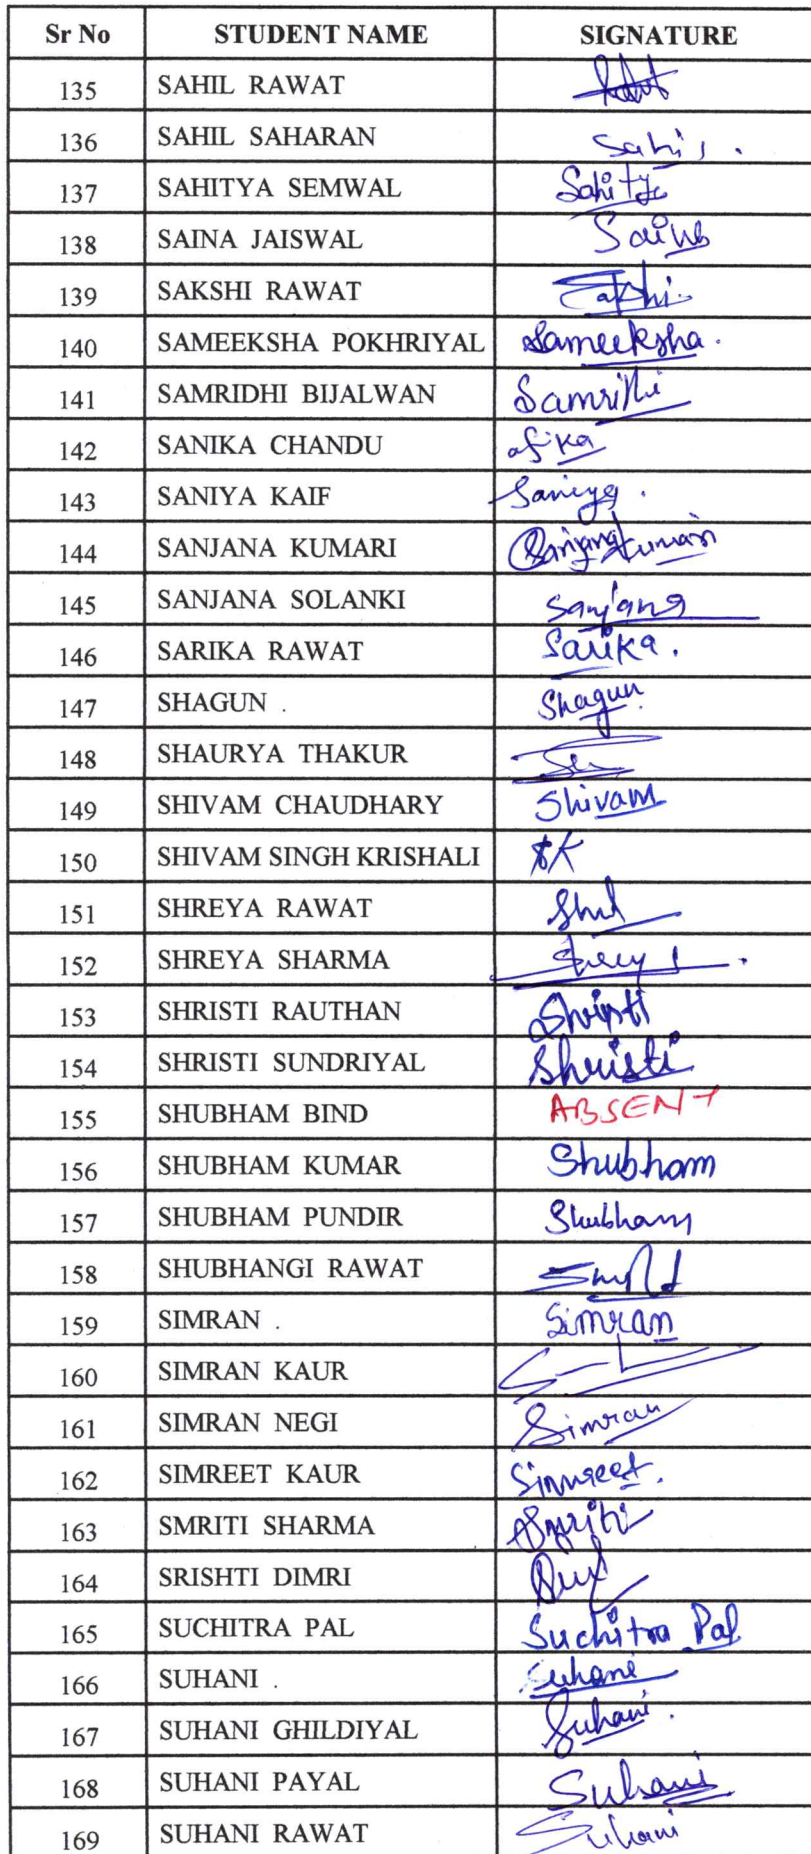 Sr No STUDENT NAME SIGNATURE
135 SAHIL RAWAT
136 SAHIL SAHARAN Sahil.
137 SAHITYA SEMWAL Sahitya
138 SAINA JAISWAL Saina
139 SAKSHI RAWAT Sakshi
140 SAMEEKSHA POKHRIYAL Sameeksha.
141 SAMRIDHI BIJALWAN
142 SANIKA CHANDU
143 SANIYA KAIF Saniya.
144 SANJANA KUMARI Sanjana Kumari
145 SANJANA SOLANKI Sanjana
146 SARIKA RAWAT Sarika.
147 SHAGUN . Shagun
148 SHAURYA THAKUR
149 SHIVAM CHAUDHARY Shivam
150 SHIVAM SINGH KRISHALI SK
151 SHREYA RAWAT
152 SHREYA SHARMA
153 SHRISTI RAUTHAN Shristi
154 SHRISTI SUNDRIYAL Shristi
155 SHUBHAM BIND ABSENT
156 SHUBHAM KUMAR Shubham
157 SHUBHAM PUNDIR Shubham
158 SHUBHANGI RAWAT
159 SIMRAN . Simran
160 SIMRAN KAUR
161 SIMRAN NEGI Simran
162 SIMREET KAUR Simreet.
163 SMRITI SHARMA Smriti
164 SRISHTI DIMRI
165 SUCHITRA PAL Suchitra Pal
166 SUHANI . Suhani
167 SUHANI GHILDIYAL Suhani.
168 SUHANI PAYAL Suhani
169 SUHANI RAWAT Suhani